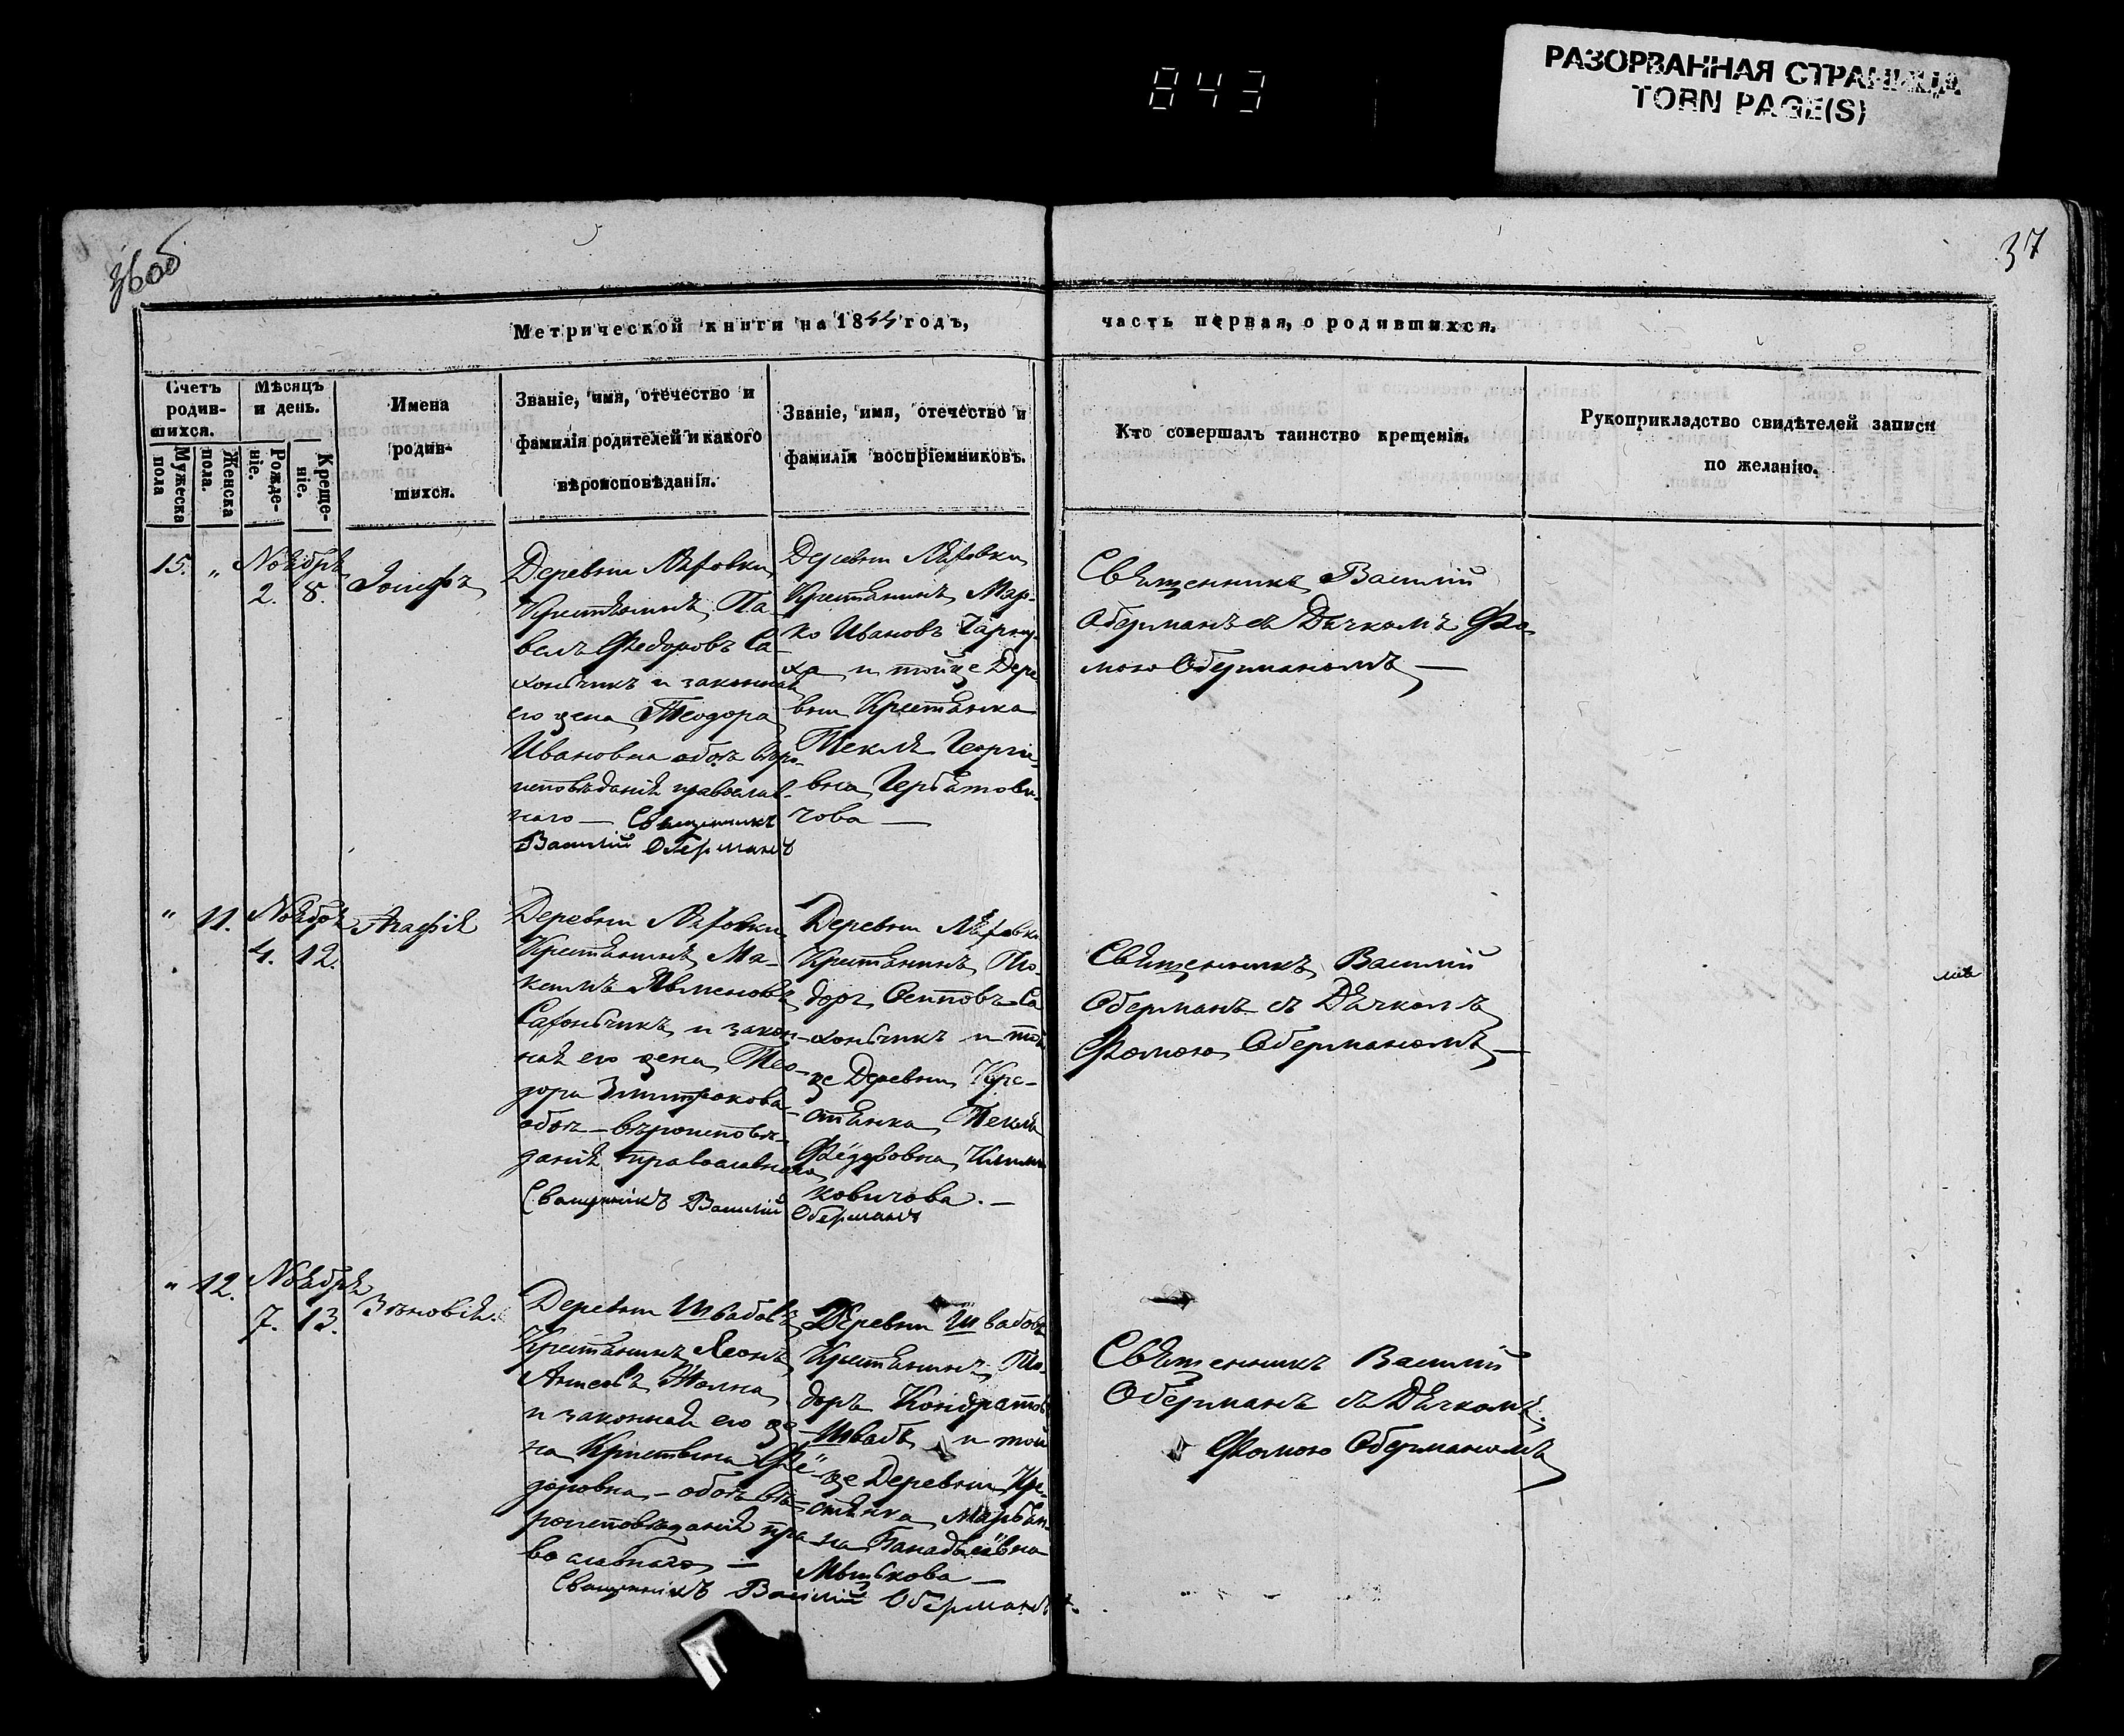 843
РАЗОРВАННАЯ СТРАНИЦА
TORN PAGE(S)
36об
37
Метрической книги на 1844 годъ,
часть первая, о родившихся.
Счетъ родив-шихся.
Мѣсяцъ и день.
Мужеска пола
Женска пола.
Рожде-ніе.
Креще-ніе.
Имена
родив-
шихся.
Званіе, имя, отечество и
фамилія родителей и какого
вѣроисповѣданія.
Званіе, имя, отечество и
фамилія воспріемниковъ.
Кто совершалъ таинство крещенія.
Рукоприкладство свидѣтелей записи
по желанію.
15. „ Ноября
2. 8.
Іосифъ
Деревни
Крестьянинъ Па-
велъ Федоровъ Са-
хончикъ и законная
его жена Теодора
Ивановна обоъ вѣро-
исповѣданія православ-
наго — Священникъ
Василій Оберманъ
Деревни
Крестьянинъ Мар-
ко Ивановъ
ха и тойже Дере-
вни Крестьянка
Текля Георгіе-
вна
чова —
Священникъ Василій
Оберманъ съ Дячкомъ Фо-
мою Оберманомъ —
„ 11. Ноября
4. 12.
Агафія
Деревни
Крестьянинъ Ма-
ксимъ
Сахончикъ и закон-
ная его жена Тео-
дора
обоъ — вѣроисповѣ-
данія православнаго
Священникъ Василій
Оберманъ
Деревни
Крестьянинъ Тео-
доръ Осиповъ Са-
хончикъ и той
же Деревни Кре-
стьянка Текля
Фёдоровна Клим-
ковичова. —
Священникъ Василій
Оберманъ съ Дячкомъ
Фомою Оберманомъ —
„ 12. Ноября
7. 13.
Зѣновія.
Деревни Швабовъ
Крестьянинъ Леонъ
и законная его же-
на Кристина Фё-
доровна — обоъ вѣ-
роисповѣданія пра-
вославнаго —
Священникъ Василій Оберманъ.
Деревни Швабовъ
Крестьянинъ Тео-
доръ Кондратовъ
Швабъ и той
же Деревни Кре-
стьянка
Священникъ Василій
Оберманъ съ Дячкомъ
Фомою Оберманомъ